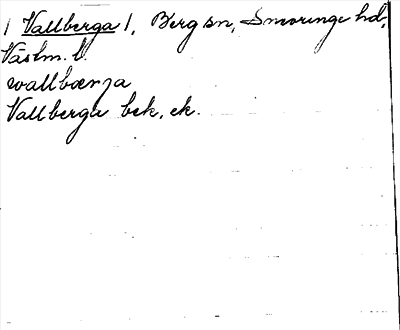 / Vallberga /, Berg sn, Snevringe hd,
Västm. l.
wallbærga
Vallberga bek, ek.